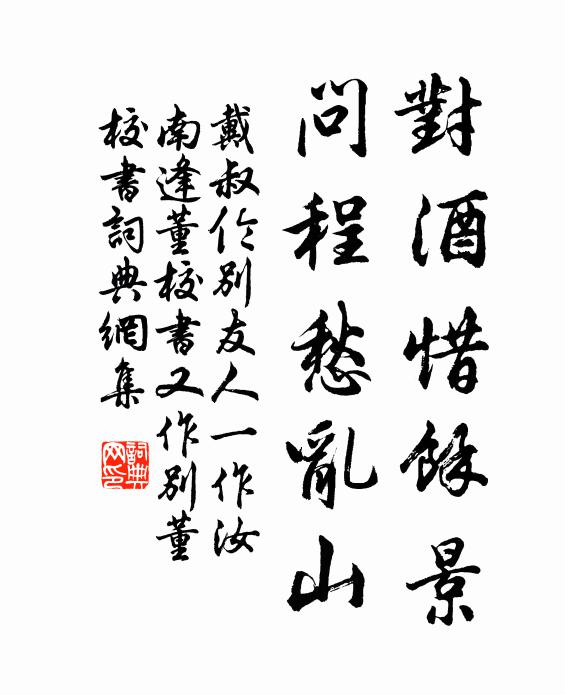 對酒惜餘景
問程愁亂山
戴叔伦別友人一作汝
南逢董校書又作別董
校書詞典網集
詞典
网印